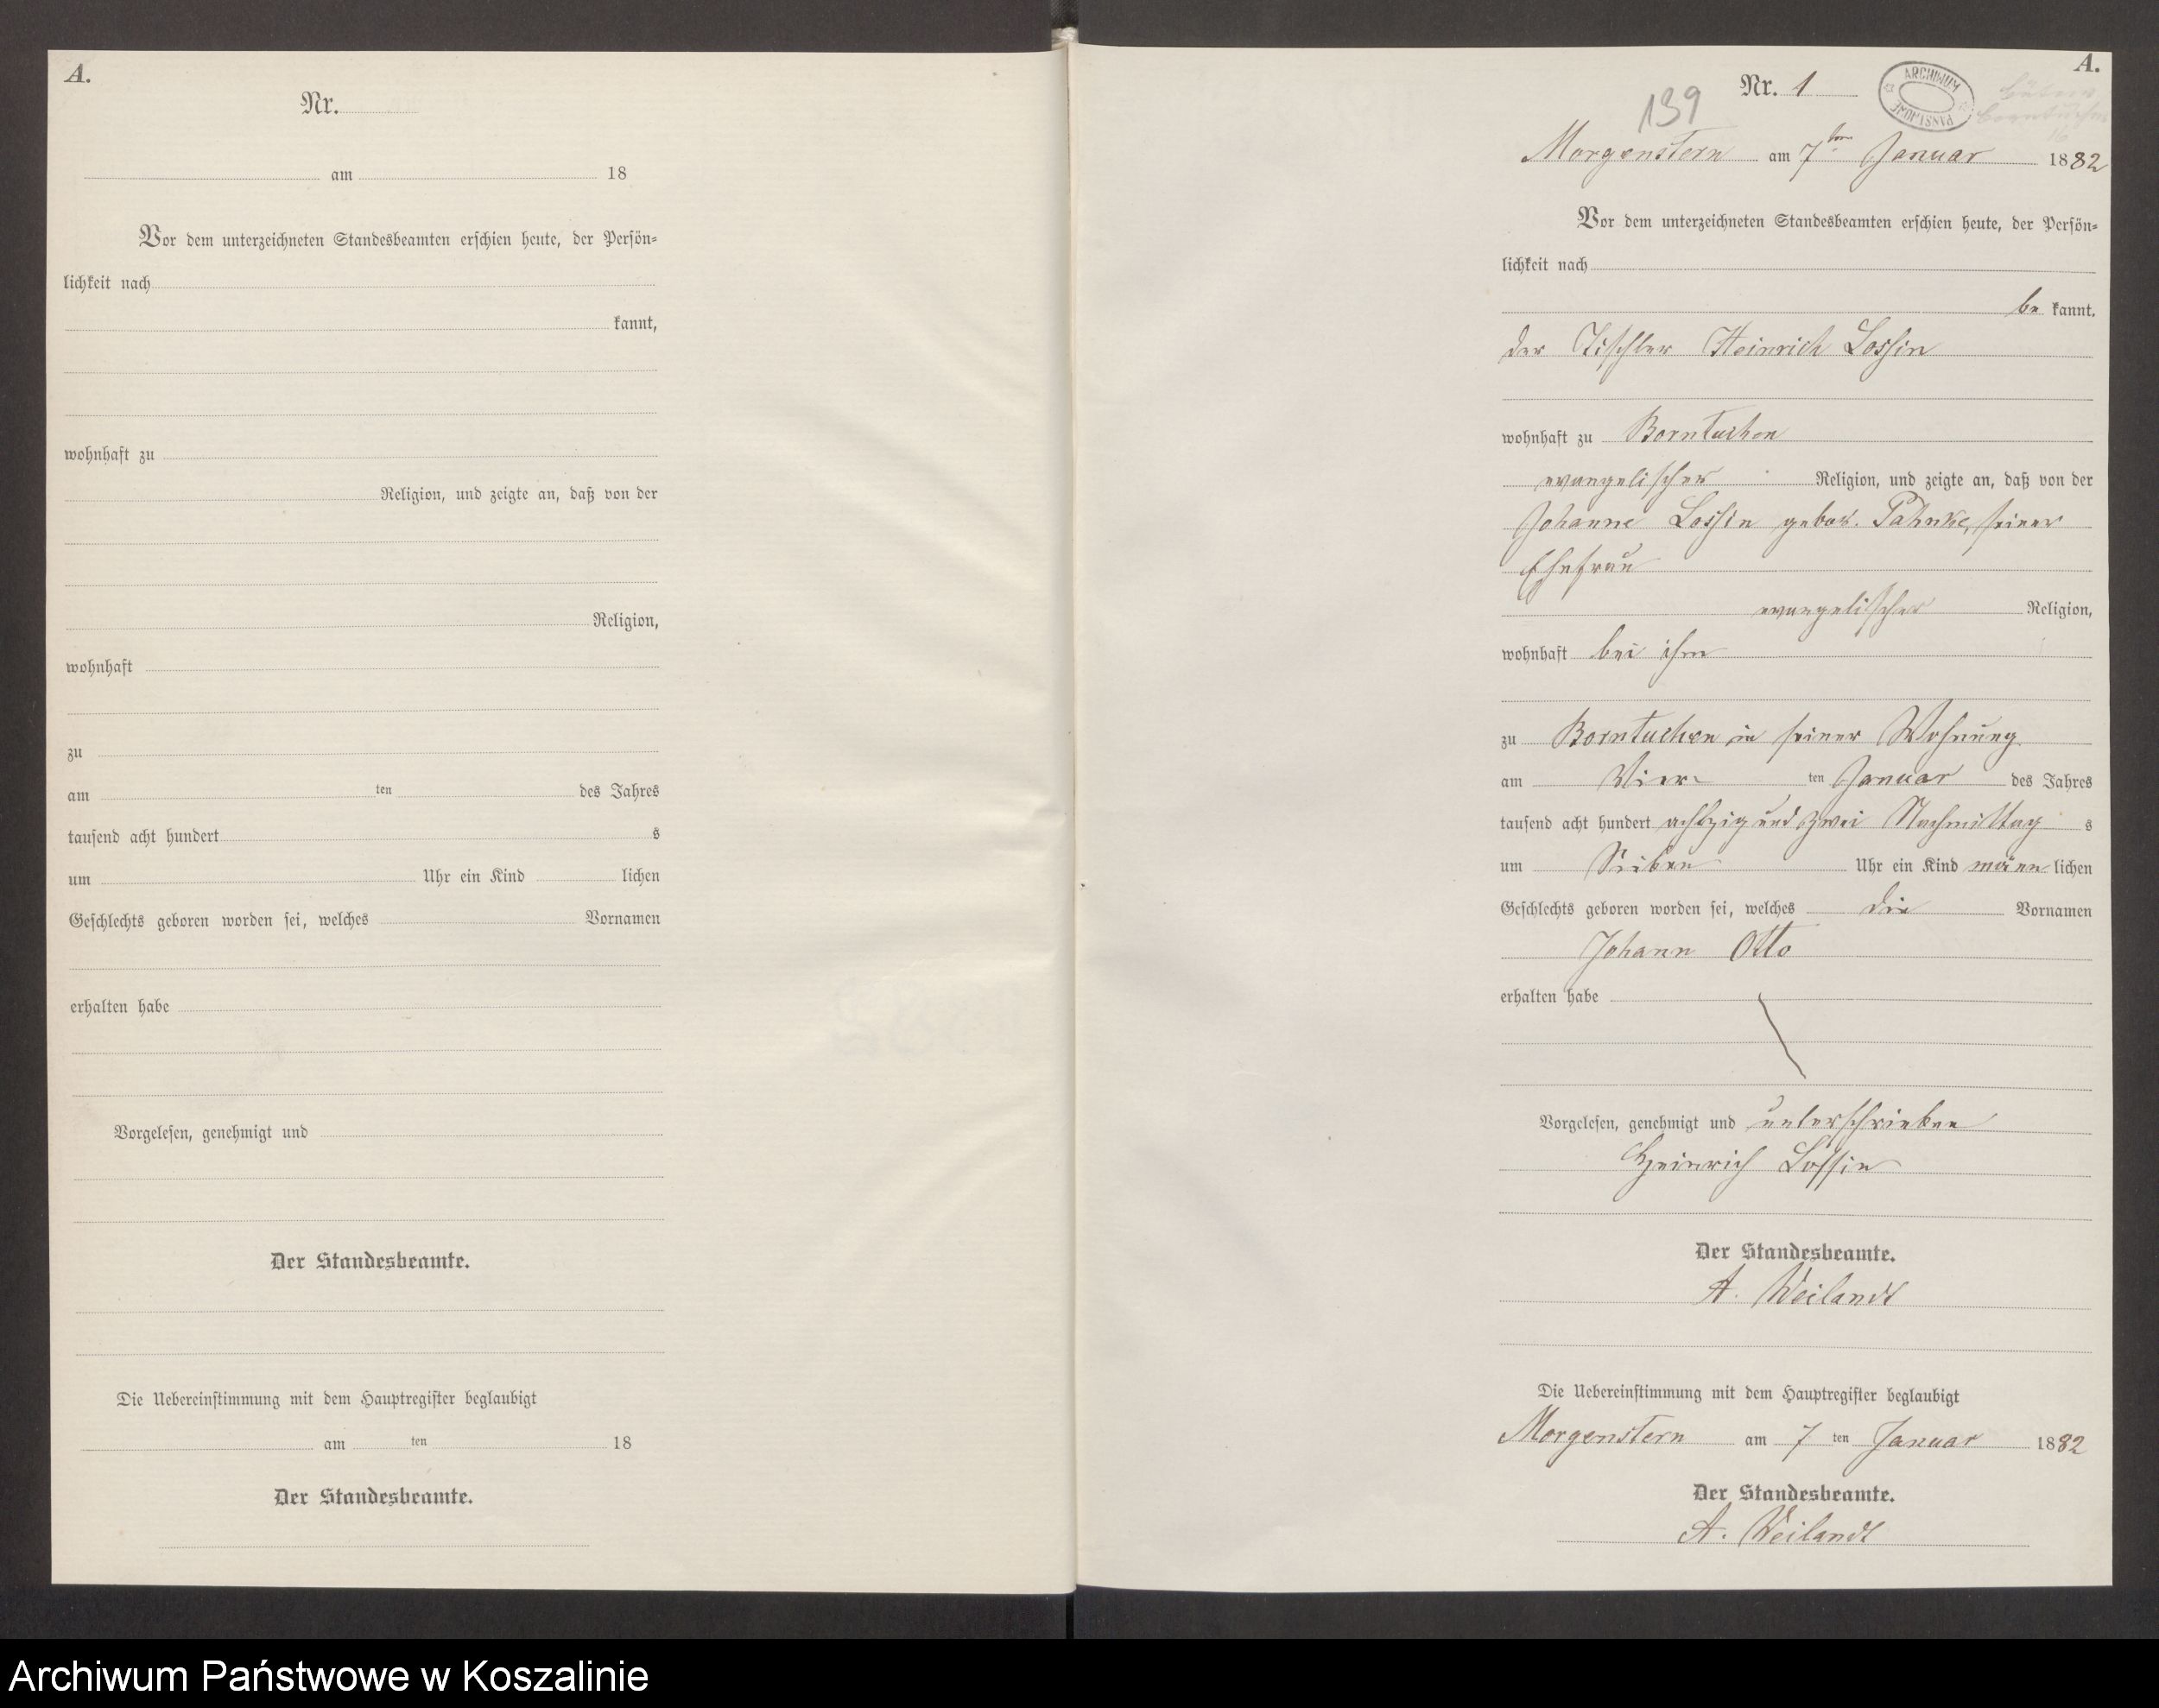 A.
Nr.
am 18
Vor dem unterzeichneten Standesbeamten erschien heute, der Persön-
lichkeit nach
kannt,
wohnhaft zu
Religion, und zeigte an, daß von der
Religion,
wohnhaft
zu
am ten des Jahres
tausend acht hundert s
um Uhr ein Kind lichen
Geschlechts geboren worden sei, welches Vornamen
erhalten habe
Vorgelesen, genehmigt und
Der Standesbeamte.
Die Uebereinstimmung mit dem Hauptregister beglaubigt
am ten 18
Der Standesbeamte.
A.
Nr. 1
ARCHIWUM PAŃSTWOWE
139
Morgenstern am 7ten Januar 1882
Vor dem unterzeichneten Standesbeamten erschien heute, der Persön-
lichkeit nach
be kannt.
der Tischler Heinrich Lossin
wohnhaft zu Borntuchen
evangelischer Religion, und zeigte an, daß von der
Johanne Lossin gebor. Pahnke, seiner
Ehefrau
evangelischer Religion,
wohnhaft bei ihm
zu Borntuchen in seiner Wohnung
am Vier ten Januar des Jahres
tausend acht hundert achtzig und zwei Nachmittag s
um Sieben Uhr ein Kind männ lichen
Geschlechts geboren worden sei, welches die Vornamen
Johann Otto
erhalten habe
Vorgelesen, genehmigt und unterschrieben
Heinrich Lossin
Der Standesbeamte.
A. Weilandt
Die Uebereinstimmung mit dem Hauptregister beglaubigt
Morgenstern am 7 ten Januar 1882
Der Standesbeamte.
A. Weilandt
Archiwum Państwowe w Koszalinie